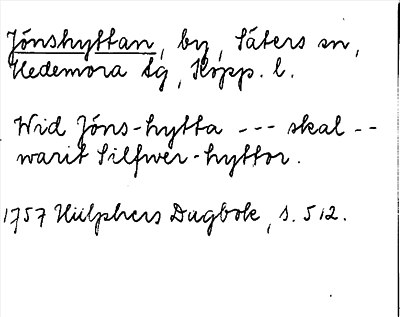 Jönshyttan, by, Säters sn,
Hedemora tg, Kopp. l.
Wid Jöns-hytta --- skal --
warit Silfwer-hyttor.
1757 Hülphers Dagbok, s. 512.